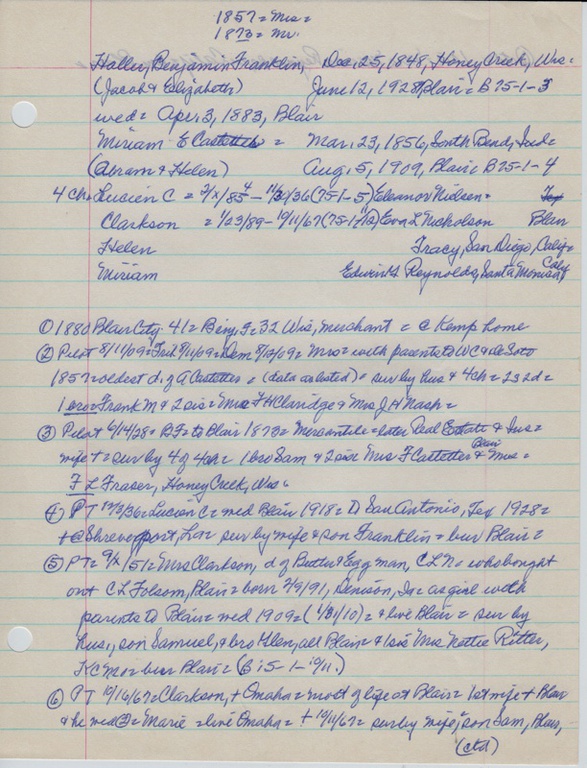 1857 = Mrs =
1873 = Mr.
Haller, Benjamin Franklin, Dec. 25, 1848, Honey Creek, Wis =
(Jacob & Elizabeth) June 12, 1928, Blair = B 75-1-3
wed = Apr. 3, 1883, Blair
Miriam E Castetter = Mar. 23, 1856, South Bend, Ind =
(Abram & Helen) Aug. 5, 1909, Blair = B 75-1-4
4 ch = Lucien C = 2/x/85 - 11/30/36 (75-1-5) Eleanor Nielsen = Tex
Clarkson = 1/23/89 - 10/11/67 (75-1- ) Eva L Nicholson Blair
Helen Tracy, San Diego, Calif =
Miriam Edwin G Reynolds, Santa Monica, Calif
① 1880 Blair City = 41 = Benj. F = 32 Wis, merchant = @ Kemp home
② Pilot 8/11/09 = 8/11/09 = Dem 8/12/09 = Mrs = with parents to WC & DeSoto
1857 = oldest d. of A Castetter = (data as listed) = sur by hus & 4 ch = 2 s 2 d =
1 bro Frank M & 2 sis = Mrs F H Claridge & Mrs J H Nash =
③ Pilot 6/14/28 = BF = to Blair 1873 = Mercantile = later Real Estate & Ins =
wife + = sur by 4 of 4 ch = 1 bro Sam & 2 sis Mrs F Castetter = Blair & Mrs =
F L Fraser, Honey Creek, Wis =
④ PT 12/3/36 = Lucien C = wed Blair 1918 = to San Antonio, Tex 1928 =
+ @ Shreveport, La = sur by wife & son Franklin = bur Blair =
⑤ PT = 9/x/51 = Mrs Clarkson, d of Butter & Egg man, C L N = who bought
out C L Folsom, Blair = born 2/9/91, Denison, Ia = as girl with
parents to Blair = wed 1909 = (1/31/10) = & live Blair = sur by
hus, son Samuel, & bro Glen, all Blair & 1 sis Mrs Nettie Ritter,
KC Mo = bur Blair = (B 75-1-10/11.)
⑥ PT 10/16/67 = Clarkson, + Omaha = most of life at Blair = 1st wife + Blair
& he wed ② = Marie = live Omaha = + 10/11/67 = sur by wife, son Sam, Blair,
(ctd)